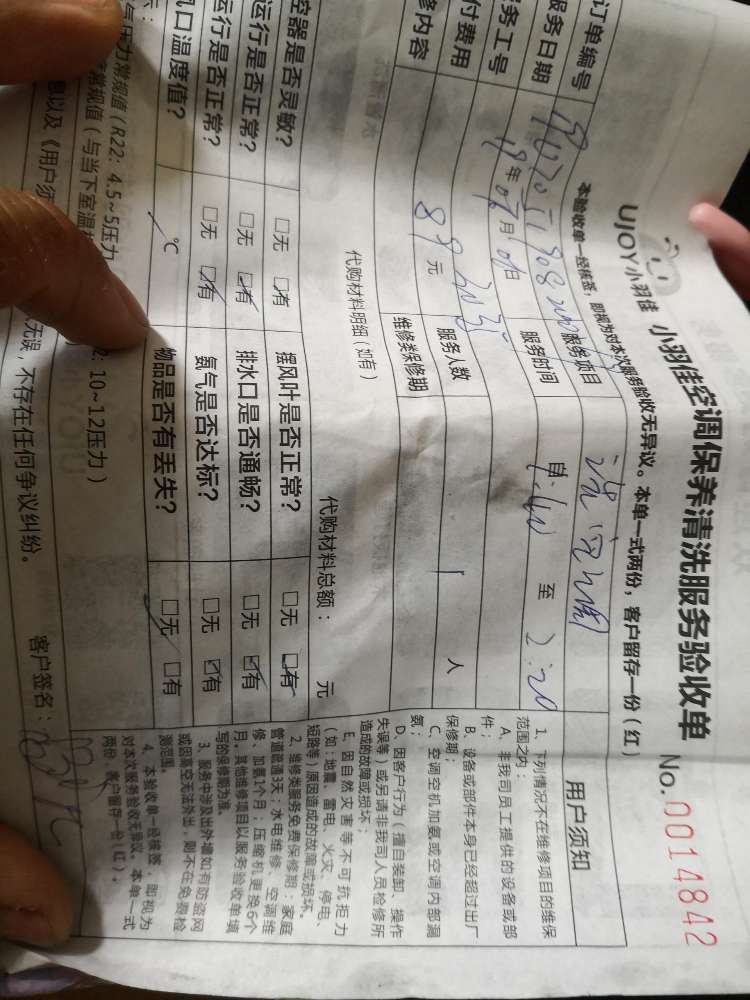 UJOY小羽佳 小羽佳空调保养清洗服务验收单 No.0014842
本验收单一经核签，即视为对本次服务验收无异议。本单一式两份，客户留存一份（红）
订单编号
服务项目 洗空调
服务日期 年 月 日
服务时间 1:40 至 2:20
务工号
服务人数 1 人
付费用 89 元
维修类保修期
修内容
代购材料明细（如有）
代购材料总额： 元
控器是否灵敏？ □无 □有
摆风叶是否正常？ □无 □有
运行是否正常？ □无 □有
排水口是否通畅？ □无 □有
运行是否正常？ □无 □有
氨气是否达标？ □无 □有
风口温度值？ ℃
物品是否有丢失？ □无 □有
气压力常规值（R22：4.5~5压力
2：10~12压力）
常规值（与当下室温
息以及《用户须
无误，不存在任何争议纠纷。
客户签名：
用户须知
1、下列情况不在维修项目的维保
范围之内：
A、非我司员工提供的设备或部
件；
B、设备或部件本身已经超过出厂
保修期；
C、空调空机加氨或空调内部漏
氨；
D、因客户行为（擅自装卸、操作
失误等）或另请非我司人员检修所
造成的故障或损坏；
E、因自然灾害等不可抗拒力
（如：地震、雷电、火灾、停电、
短路等）原因造成的故障或损坏。
2、维修类服务免费保修期：家庭
管道疏通3天；水电维修、空调维
修、加氨1个月；压缩机更换6个
月，其他维修项目以服务验收单填
写的保修期为准。
3、服务中涉及出外墙如有防盗网
或因高空无法外出，则不在免费检
测范围。
4、本验收单一经核签，即视为
对本次服务验收无异议。本单一式
两份，客户留存一份（红）。